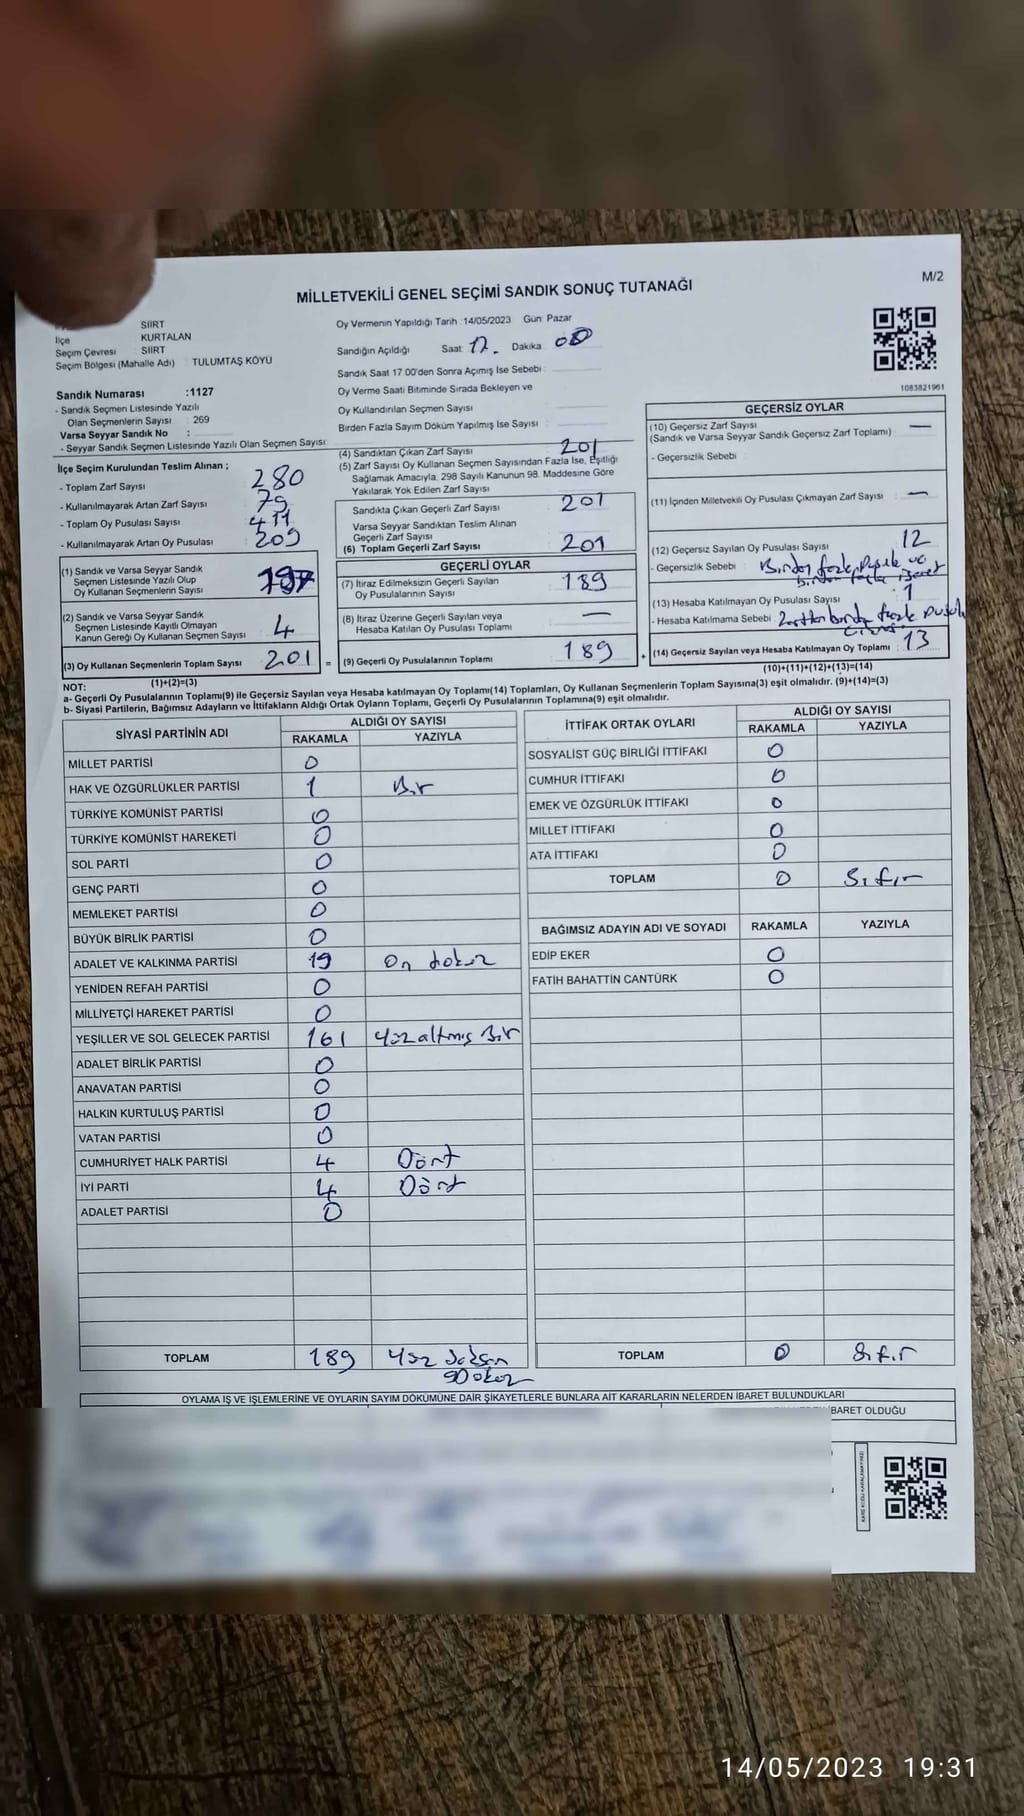 MİLLETVEKİLİ GENEL SEÇİMİ SANDIK SONUÇ TUTANAĞI
M/2
SİİRT
İlçe KURTALAN
Seçim Çevresi SİİRT
Seçim Bölgesi (Mahalle Adı) TULUMTAŞ KÖYÜ
Sandık Numarası :1127
- Sandık Seçmen Listesinde Yazılı
Olan Seçmenlerin Sayısı : 269
Varsa Seyyar Sandık No :
- Seyyar Sandık Seçmen Listesinde Yazılı Olan Seçmen Sayısı:
İlçe Seçim Kurulundan Teslim Alınan ;
- Toplam Zarf Sayısı 280
- Kullanılmayarak Artan Zarf Sayısı 79
- Toplam Oy Pusulası Sayısı 411
- Kullanılmayarak Artan Oy Pusulası 209
(1) Sandık ve Varsa Seyyar Sandık
Seçmen Listesinde Yazılı Olup
Oy Kullanan Seçmenlerin Sayısı 197
(2) Sandık ve Varsa Seyyar Sandık
Seçmen Listesinde Kayıtlı Olmayan
Kanun Gereği Oy Kullanan Seçmen Sayısı 4
(3) Oy Kullanan Seçmenlerin Toplam Sayısı 201 =
(1)+(2)=(3)
Oy Vermenin Yapıldığı Tarih :14/05/2023 Gün: Pazar
Sandığın Açıldığı Saat: 17. Dakika 00
Sandık Saat 17:00'den Sonra Açımış İse Sebebi :
Oy Verme Saati Bitiminde Sırada Bekleyen ve
Oy Kullandırılan Seçmen Sayısı
Birden Fazla Sayım Döküm Yapılmış İse Sayısı :
(4) Sandıktan Çıkan Zarf Sayısı 201
(5) Zarf Sayısı Oy Kullanan Seçmen Sayısından Fazla İse, Eşitliği
Sağlamak Amacıyla; 298 Sayılı Kanunun 98. Maddesine Göre
Yakılarak Yok Edilen Zarf Sayısı
Sandıkta Çıkan Geçerli Zarf Sayısı 201
Varsa Seyyar Sandıktan Teslim Alınan
Geçerli Zarf Sayısı
(6) Toplam Geçerli Zarf Sayısı 201
GEÇERLİ OYLAR
(7) İtiraz Edilmeksizin Geçerli Sayılan
Oy Pusulalarının Sayısı 189
(8) İtiraz Üzerine Geçerli Sayılan veya
Hesaba Katılan Oy Pusulası Toplamı —
(9) Geçerli Oy Pusulalarının Toplamı 189 +
1083821961
GEÇERSİZ OYLAR
(10) Geçersiz Zarf Sayısı —
(Sandık ve Varsa Seyyar Sandık Geçersiz Zarf Toplamı)
- Geçersizlik Sebebi
(11) İçinden Milletvekili Oy Pusulası Çıkmayan Zarf Sayısı —
(12) Geçersiz Sayılan Oy Pusulası Sayısı 12
- Geçersizlik Sebebi : Birden fazla pusula ve
birden fazla işaret
(13) Hesaba Katılmayan Oy Pusulası Sayısı 1
- Hesaba Katılmama Sebebi : Zarftan birden fazla pusula
çıkması
(14) Geçersiz Sayılan veya Hesaba Katılmayan Oy Toplamı 13
(10)+(11)+(12)+(13)=(14)
NOT:
a- Geçerli Oy Pusulalarının Toplamı(9) ile Geçersiz Sayılan veya Hesaba katılmayan Oy Toplamı(14) Toplamları, Oy Kullanan Seçmenlerin Toplam Sayısına(3) eşit olmalıdır. (9)+(14)=(3)
b- Siyasi Partilerin, Bağımsız Adayların ve İttifakların Aldığı Ortak Oyların Toplamı, Geçerli Oy Pusulalarının Toplamına(9) eşit olmalıdır.
SİYASİ PARTİNİN ADI ALDIĞI OY SAYISI
RAKAMLA YAZIYLA
MİLLET PARTİSİ 0
HAK VE ÖZGÜRLÜKLER PARTİSİ 1 Bir
TÜRKİYE KOMÜNİST PARTİSİ 0
TÜRKİYE KOMÜNİST HAREKETİ 0
SOL PARTİ 0
GENÇ PARTİ 0
MEMLEKET PARTİSİ 0
BÜYÜK BİRLİK PARTİSİ 0
ADALET VE KALKINMA PARTİSİ 19 On dokuz
YENİDEN REFAH PARTİSİ 0
MİLLİYETÇİ HAREKET PARTİSİ 0
YEŞİLLER VE SOL GELECEK PARTİSİ 161 Yüz altmış Bir
ADALET BİRLİK PARTİSİ 0
ANAVATAN PARTİSİ 0
HALKIN KURTULUŞ PARTİSİ 0
VATAN PARTİSİ 0
CUMHURİYET HALK PARTİSİ 4 Dört
İYİ PARTİ 4 Dört
ADALET PARTİSİ 0
TOPLAM 189 Yüz seksen
dokuz
İTTİFAK ORTAK OYLARI ALDIĞI OY SAYISI
RAKAMLA YAZIYLA
SOSYALİST GÜÇ BİRLİĞİ İTTİFAKI 0
CUMHUR İTTİFAKI 0
EMEK VE ÖZGÜRLÜK İTTİFAKI 0
MİLLET İTTİFAKI 0
ATA İTTİFAKI 0
TOPLAM 0 Sıfır
BAĞIMSIZ ADAYIN ADI VE SOYADI RAKAMLA YAZIYLA
EDİP EKER 0
FATİH BAHATTİN CANTÜRK 0
TOPLAM 0 Sıfır
OYLAMA İŞ VE İŞLEMLERİNE VE OYLARIN SAYIM DÖKÜMÜNE DAİR ŞİKAYETLERLE BUNLARA AİT KARARLARIN NELERDEN İBARET BULUNDUKLARI
İBARET OLDUĞU
14/05/2023 19:31